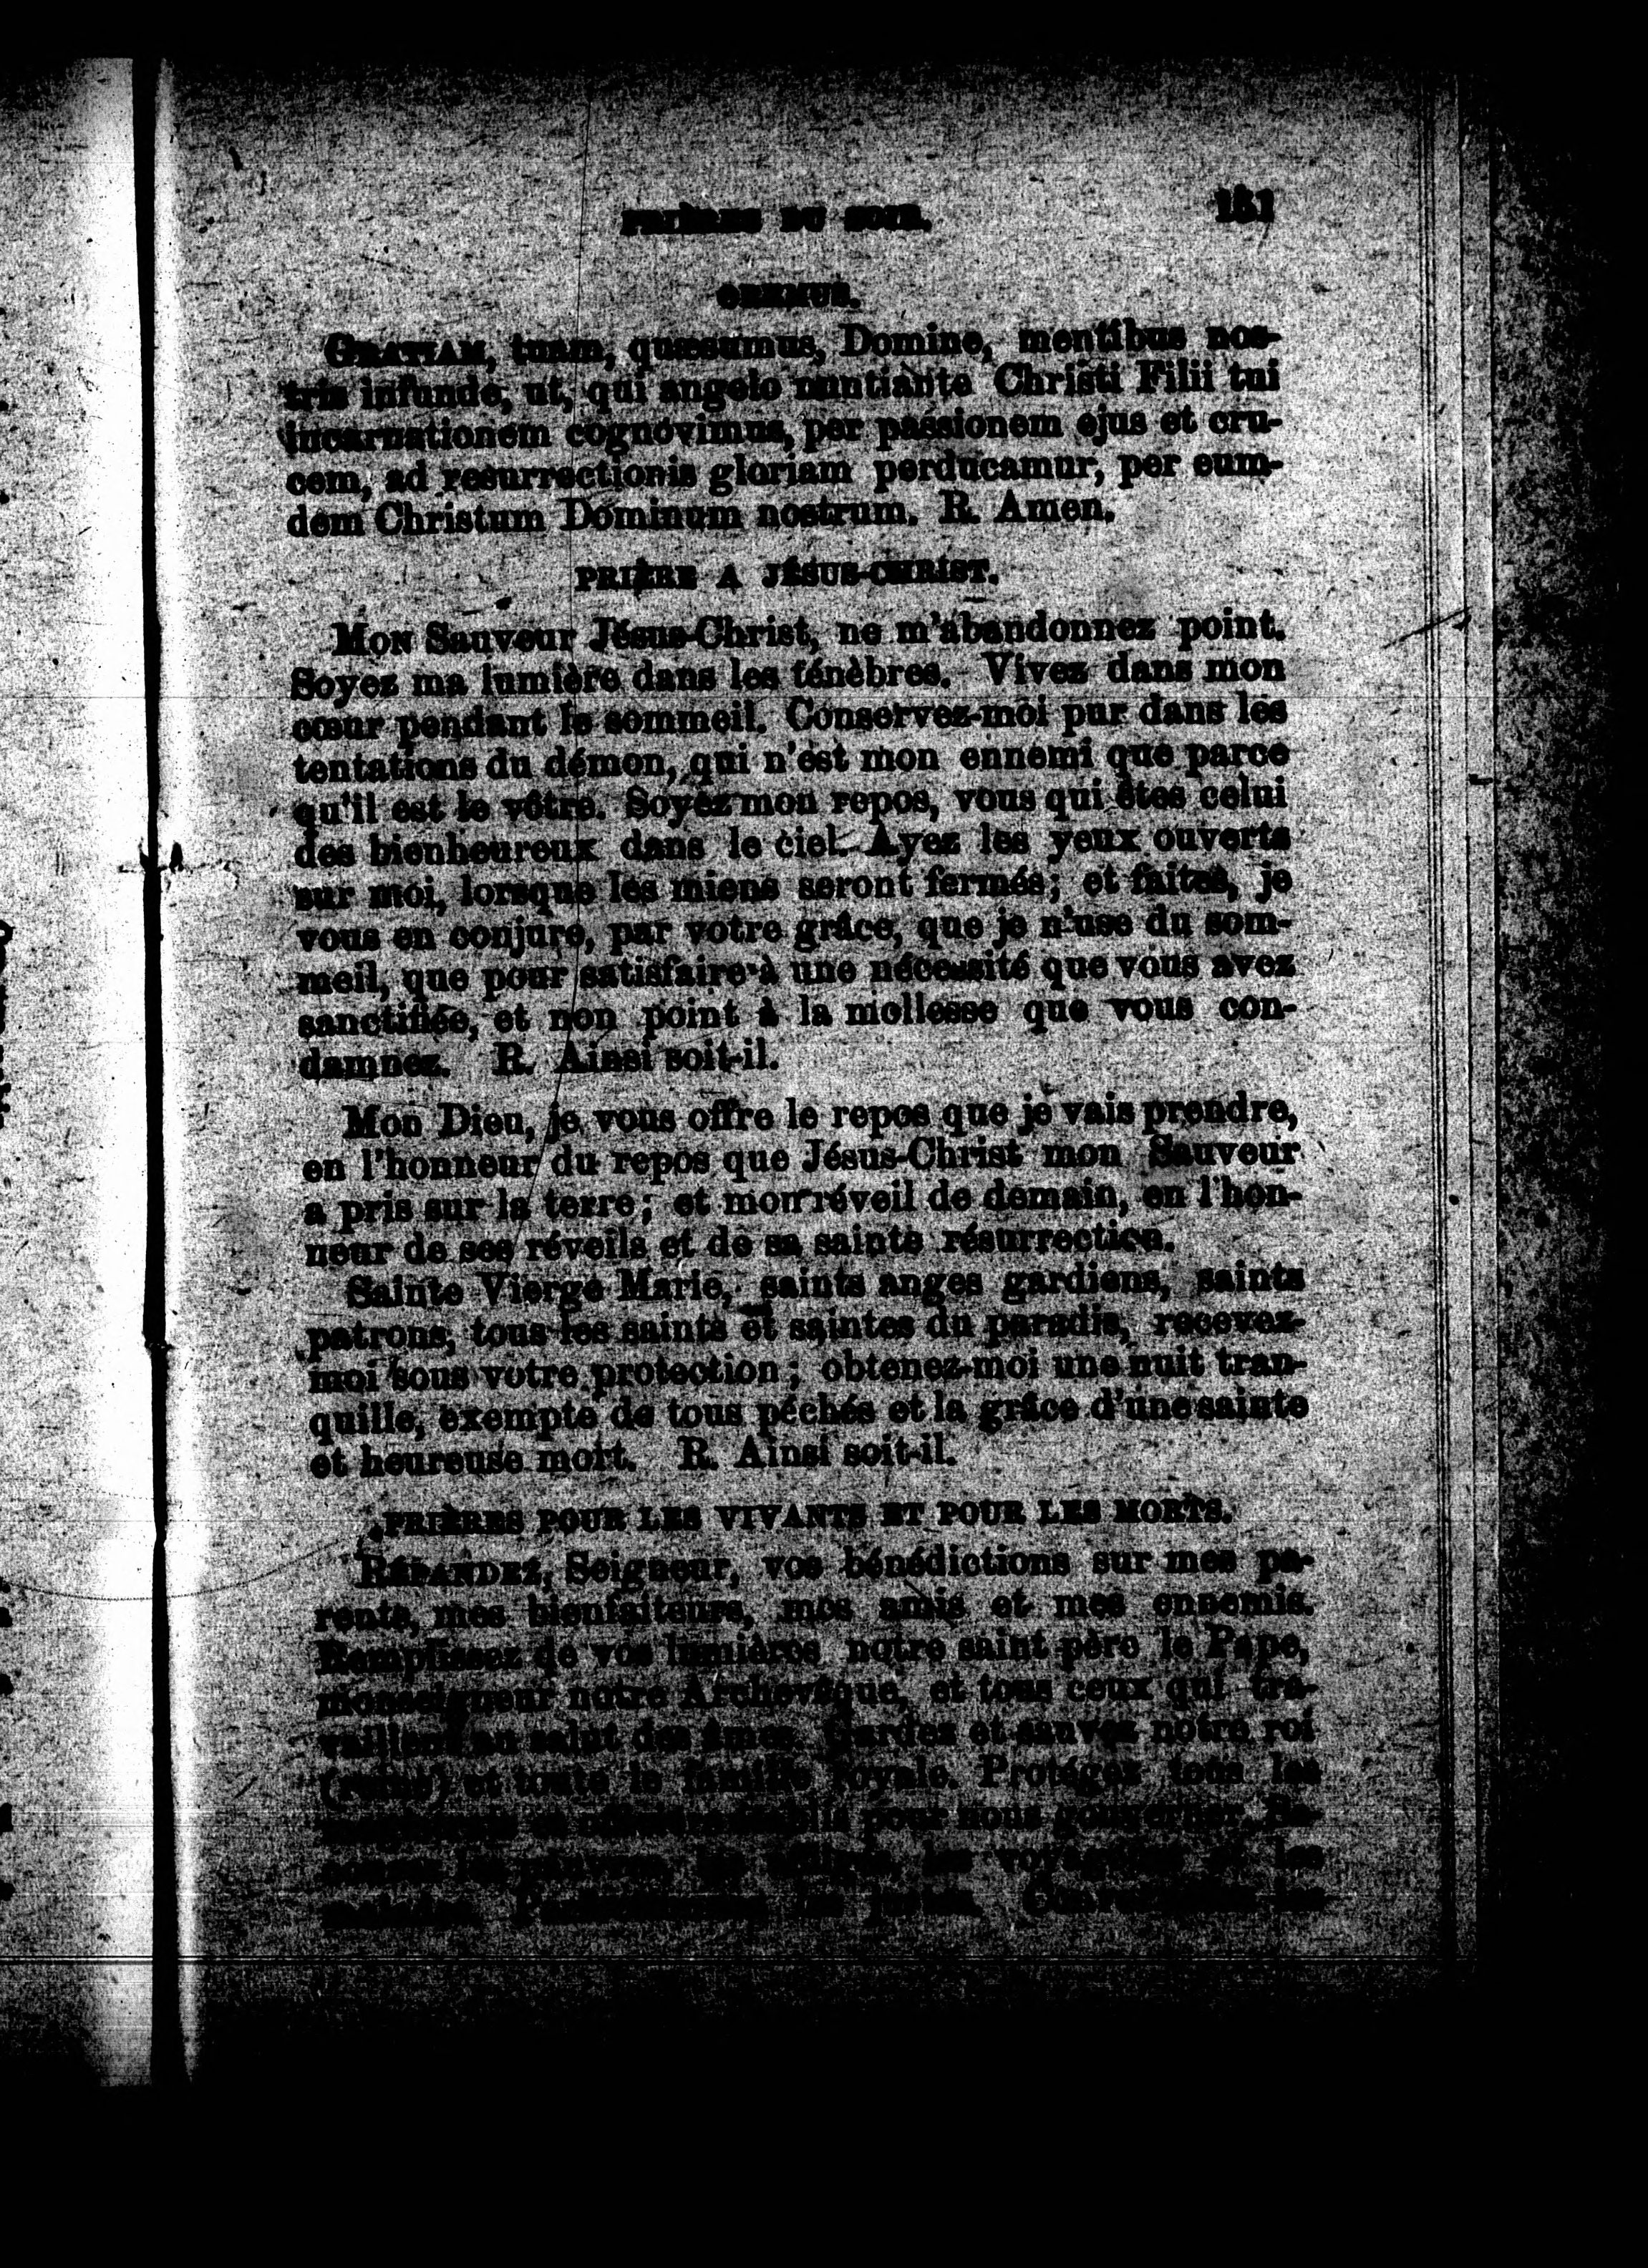 PRIÈRES DU SOIR.
OREMUS.
GRATIAM, tuam, quæsumus, Domine, mentibus nos-
tris infunde, ut, qui angelo nuntiante Christi Filii tui
incarnationem cognovimus, per passionem ejus et cru-
cem, ad resurrectionis gloriam perducamur, per eum-
dem Christum Dominum nostrum. R. Amen.
PRIÈRE A JÉSUS-CHRIST.
MON Sauveur Jésus-Christ, ne m'abandonnez point.
Soyez ma lumière dans les ténèbres. Vivez dans mon
cœur pendant le sommeil. Conservez-moi pur dans les
tentations du démon, qui n'est mon ennemi que parce
qu'il est le vôtre. Soyez mon repos, vous qui êtes celui
des bienheureux dans le ciel. Ayez les yeux ouverts
sur moi, lorsque les miens seront fermés; et faites, je
vous en conjure, par votre grâce, que je n'use du som-
meil, que pour satisfaire à une nécessité que vous avez
sanctifiée, et non point à la mollesse que vous con-
damnez. R. Ainsi soit-il.
Mon Dieu, je vous offre le repos que je vais prendre,
en l'honneur du repos que Jésus-Christ mon Sauveur
a pris sur la terre; et mon réveil de demain, en l'hon-
neur de ses réveils et de sa sainte résurrection.
Sainte Vierge Marie, saints anges gardiens, saints
patrons, tous les saints et saintes du paradis, recevez-
moi sous votre protection; obtenez-moi une nuit tran-
quille, exempte de tous péchés et la grâce d'une sainte
et heureuse mort. R. Ainsi soit-il.
PRIÈRES POUR LES VIVANTS ET POUR LES MORTS.
RÉPANDEZ, Seigneur, vos bénédictions sur mes pa-
rents, mes bienfaiteurs, mes amis et mes ennemis.
Remplissez de vos lumières notre saint père le Pape,
monseigneur notre Archevêque, et tous ceux qui tra-
vaillent au salut des âmes. Gardez et sauvez notre roi
(reine) et toute la famille royale. Protégez tous les
pour nous gouverner.
les voyageurs et les